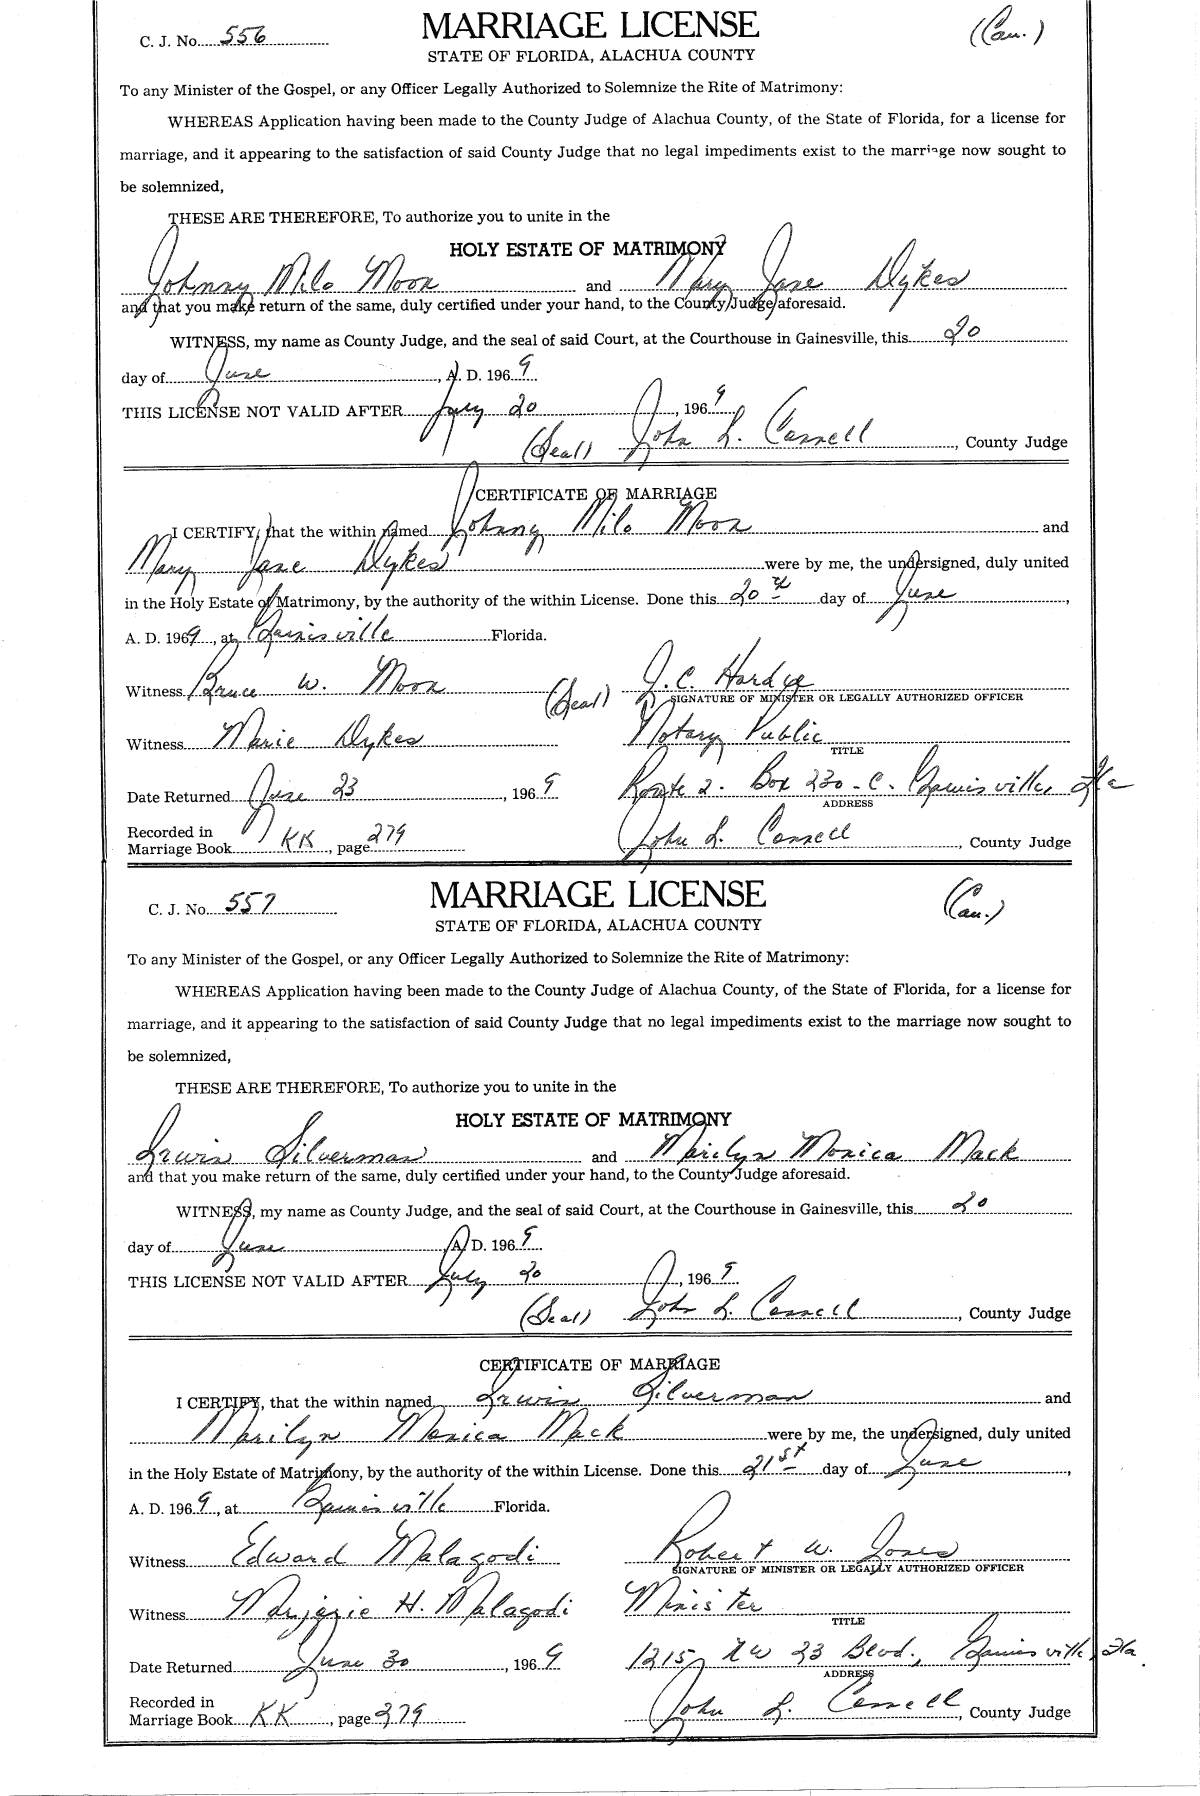 C. J. No. 556 MARRIAGE LICENSE (Cau.)
STATE OF FLORIDA, ALACHUA COUNTY
To any Minister of the Gospel, or any Officer Legally Authorized to Solemnize the Rite of Matrimony:
WHEREAS Application having been made to the County Judge of Alachua County, of the State of Florida, for a license for
marriage, and it appearing to the satisfaction of said County Judge that no legal impediments exist to the marriage now sought to
be solemnized,
THESE ARE THEREFORE, To authorize you to unite in the
HOLY ESTATE OF MATRIMONY
Johnny Milo Moon and Mary Jane Dykes
and that you make return of the same, duly certified under your hand, to the County Judge aforesaid.
WITNESS, my name as County Judge, and the seal of said Court, at the Courthouse in Gainesville, this 20
day of June, A. D. 1969
THIS LICENSE NOT VALID AFTER July 20, 1969
(Seal) John L. Connell, County Judge
CERTIFICATE OF MARRIAGE
I CERTIFY, that the within named Johnny Milo Moon and
Mary Jane Dykes were by me, the undersigned, duly united
in the Holy Estate of Matrimony, by the authority of the within License. Done this 20th day of June,
A. D. 1969, at Gainisville Florida.
Witness Bruce W. Moon (Seal) J. C. Hardye
SIGNATURE OF MINISTER OR LEGALLY AUTHORIZED OFFICER
Witness Marie Dykes Notary Public
TITLE
Date Returned June 23, 1969 Route 2. Box 230-C. Gainisville, Fla
ADDRESS
Recorded in
Marriage Book KK, page 279 John L. Connell, County Judge
C. J. No. 557 MARRIAGE LICENSE (Cau.)
STATE OF FLORIDA, ALACHUA COUNTY
To any Minister of the Gospel, or any Officer Legally Authorized to Solemnize the Rite of Matrimony:
WHEREAS Application having been made to the County Judge of Alachua County, of the State of Florida, for a license for
marriage, and it appearing to the satisfaction of said County Judge that no legal impediments exist to the marriage now sought to
be solemnized,
THESE ARE THEREFORE, To authorize you to unite in the
HOLY ESTATE OF MATRIMONY
Irwin Silverman and Marilyn Monica Mack
and that you make return of the same, duly certified under your hand, to the County Judge aforesaid.
WITNESS, my name as County Judge, and the seal of said Court, at the Courthouse in Gainesville, this 20
day of June A. D. 1969
THIS LICENSE NOT VALID AFTER July 20, 1969
(Seal) John L. Connell, County Judge
CERTIFICATE OF MARRIAGE
I CERTIFY, that the within named Irwin Silverman and
Marilyn Monica Mack were by me, the undersigned, duly united
in the Holy Estate of Matrimony, by the authority of the within License. Done this 21st day of June,
A. D. 1969, at Gainisville Florida.
Witness Edward Malagodi Robert W. Jones
SIGNATURE OF MINISTER OR LEGALLY AUTHORIZED OFFICER
Witness Marjorie H. Malagodi Minister
TITLE
Date Returned June 30, 1969 1215 NW 23 Blvd., Gainisville, Fla.
ADDRESS
Recorded in
Marriage Book KK, page 279 John L. Connell, County Judge